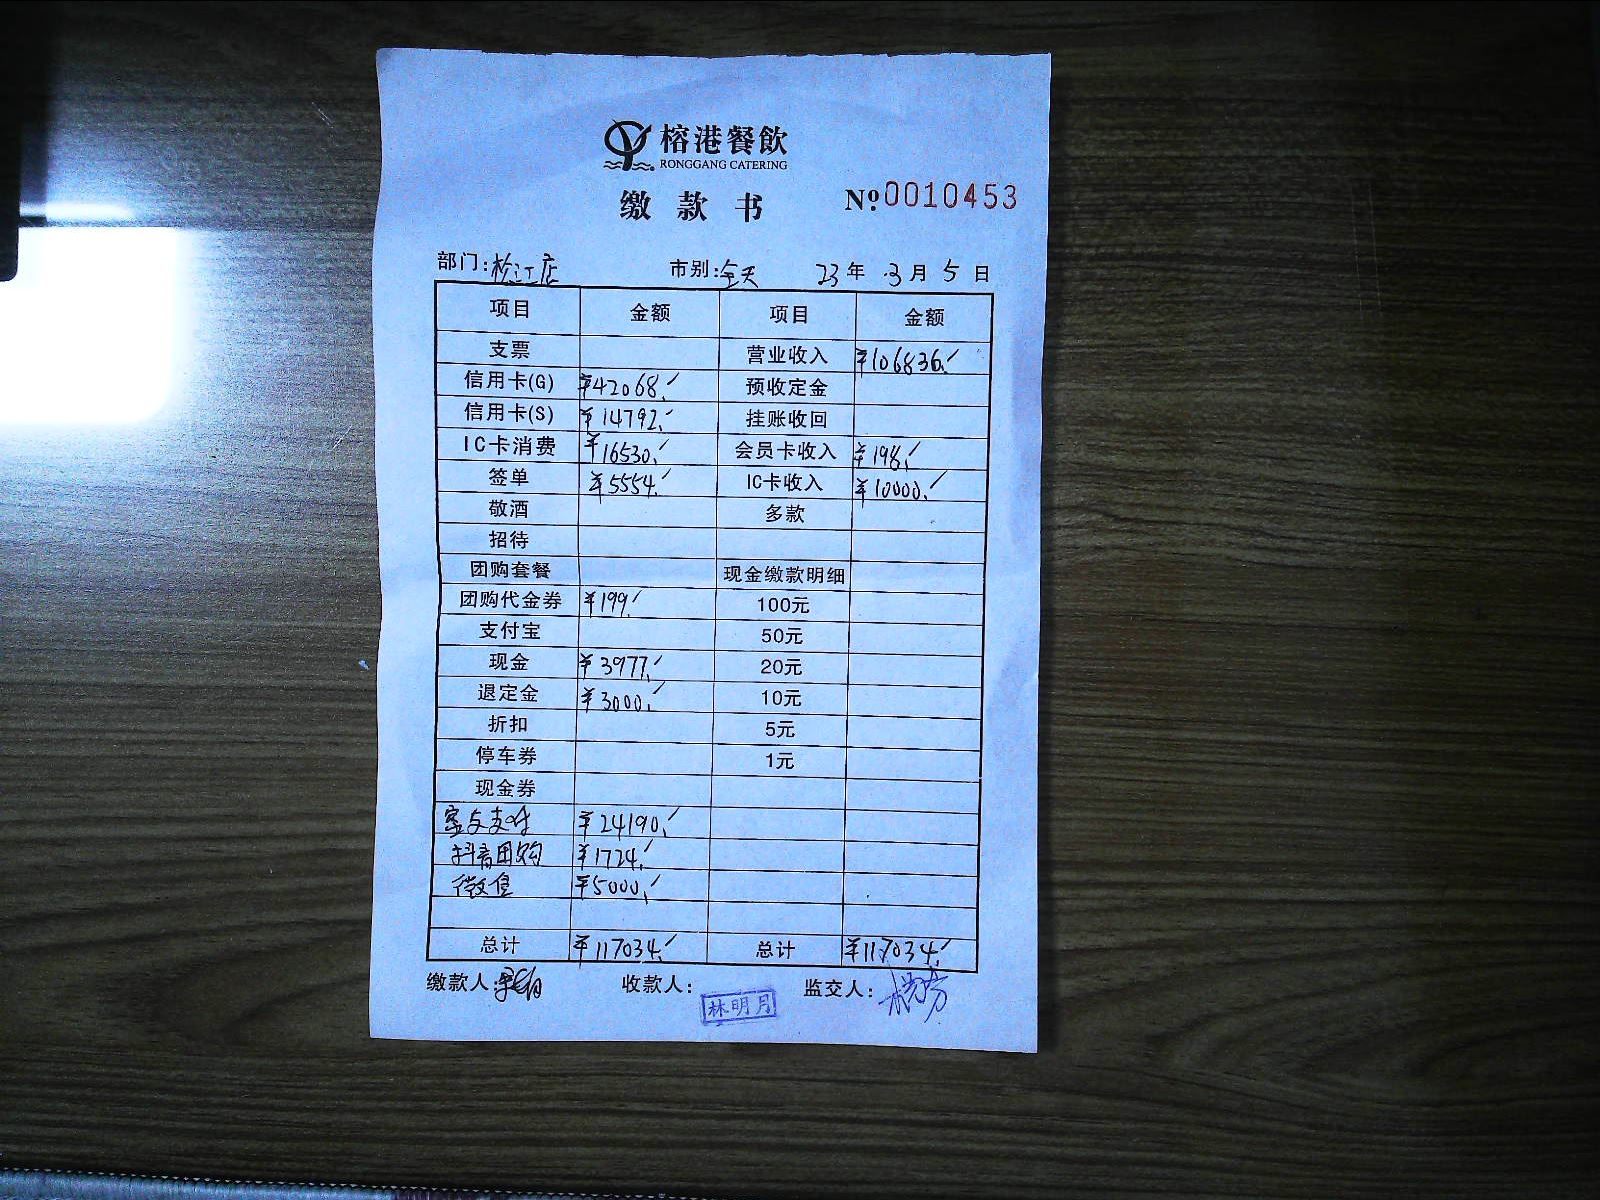 榕港餐飲
RONGGANG CATERING
缴款书 №0010453
部门:松江店 市别:全天 23年 3月 5日
项目 金额 项目 金额
支票 营业收入 ¥106836.
信用卡(G) ¥42068. 预收定金
信用卡(S) ¥14792. 挂账收回
IC卡消费 ¥16530. 会员卡收入 ¥198.
签单 ¥5554. IC卡收入 ¥10000.
敬酒 多款
招待
团购套餐 现金缴款明细
团购代金券 ¥199. 100元
支付宝 50元
现金 ¥3977. 20元
退定金 ¥3000. 10元
折扣 5元
停车券 1元
现金券
富友支付 ¥24190.
抖音团购 ¥1724.
微信 ¥5000.
总计 ¥117034. 总计 ¥117034.
缴款人: 收款人: 监交人:
林明月